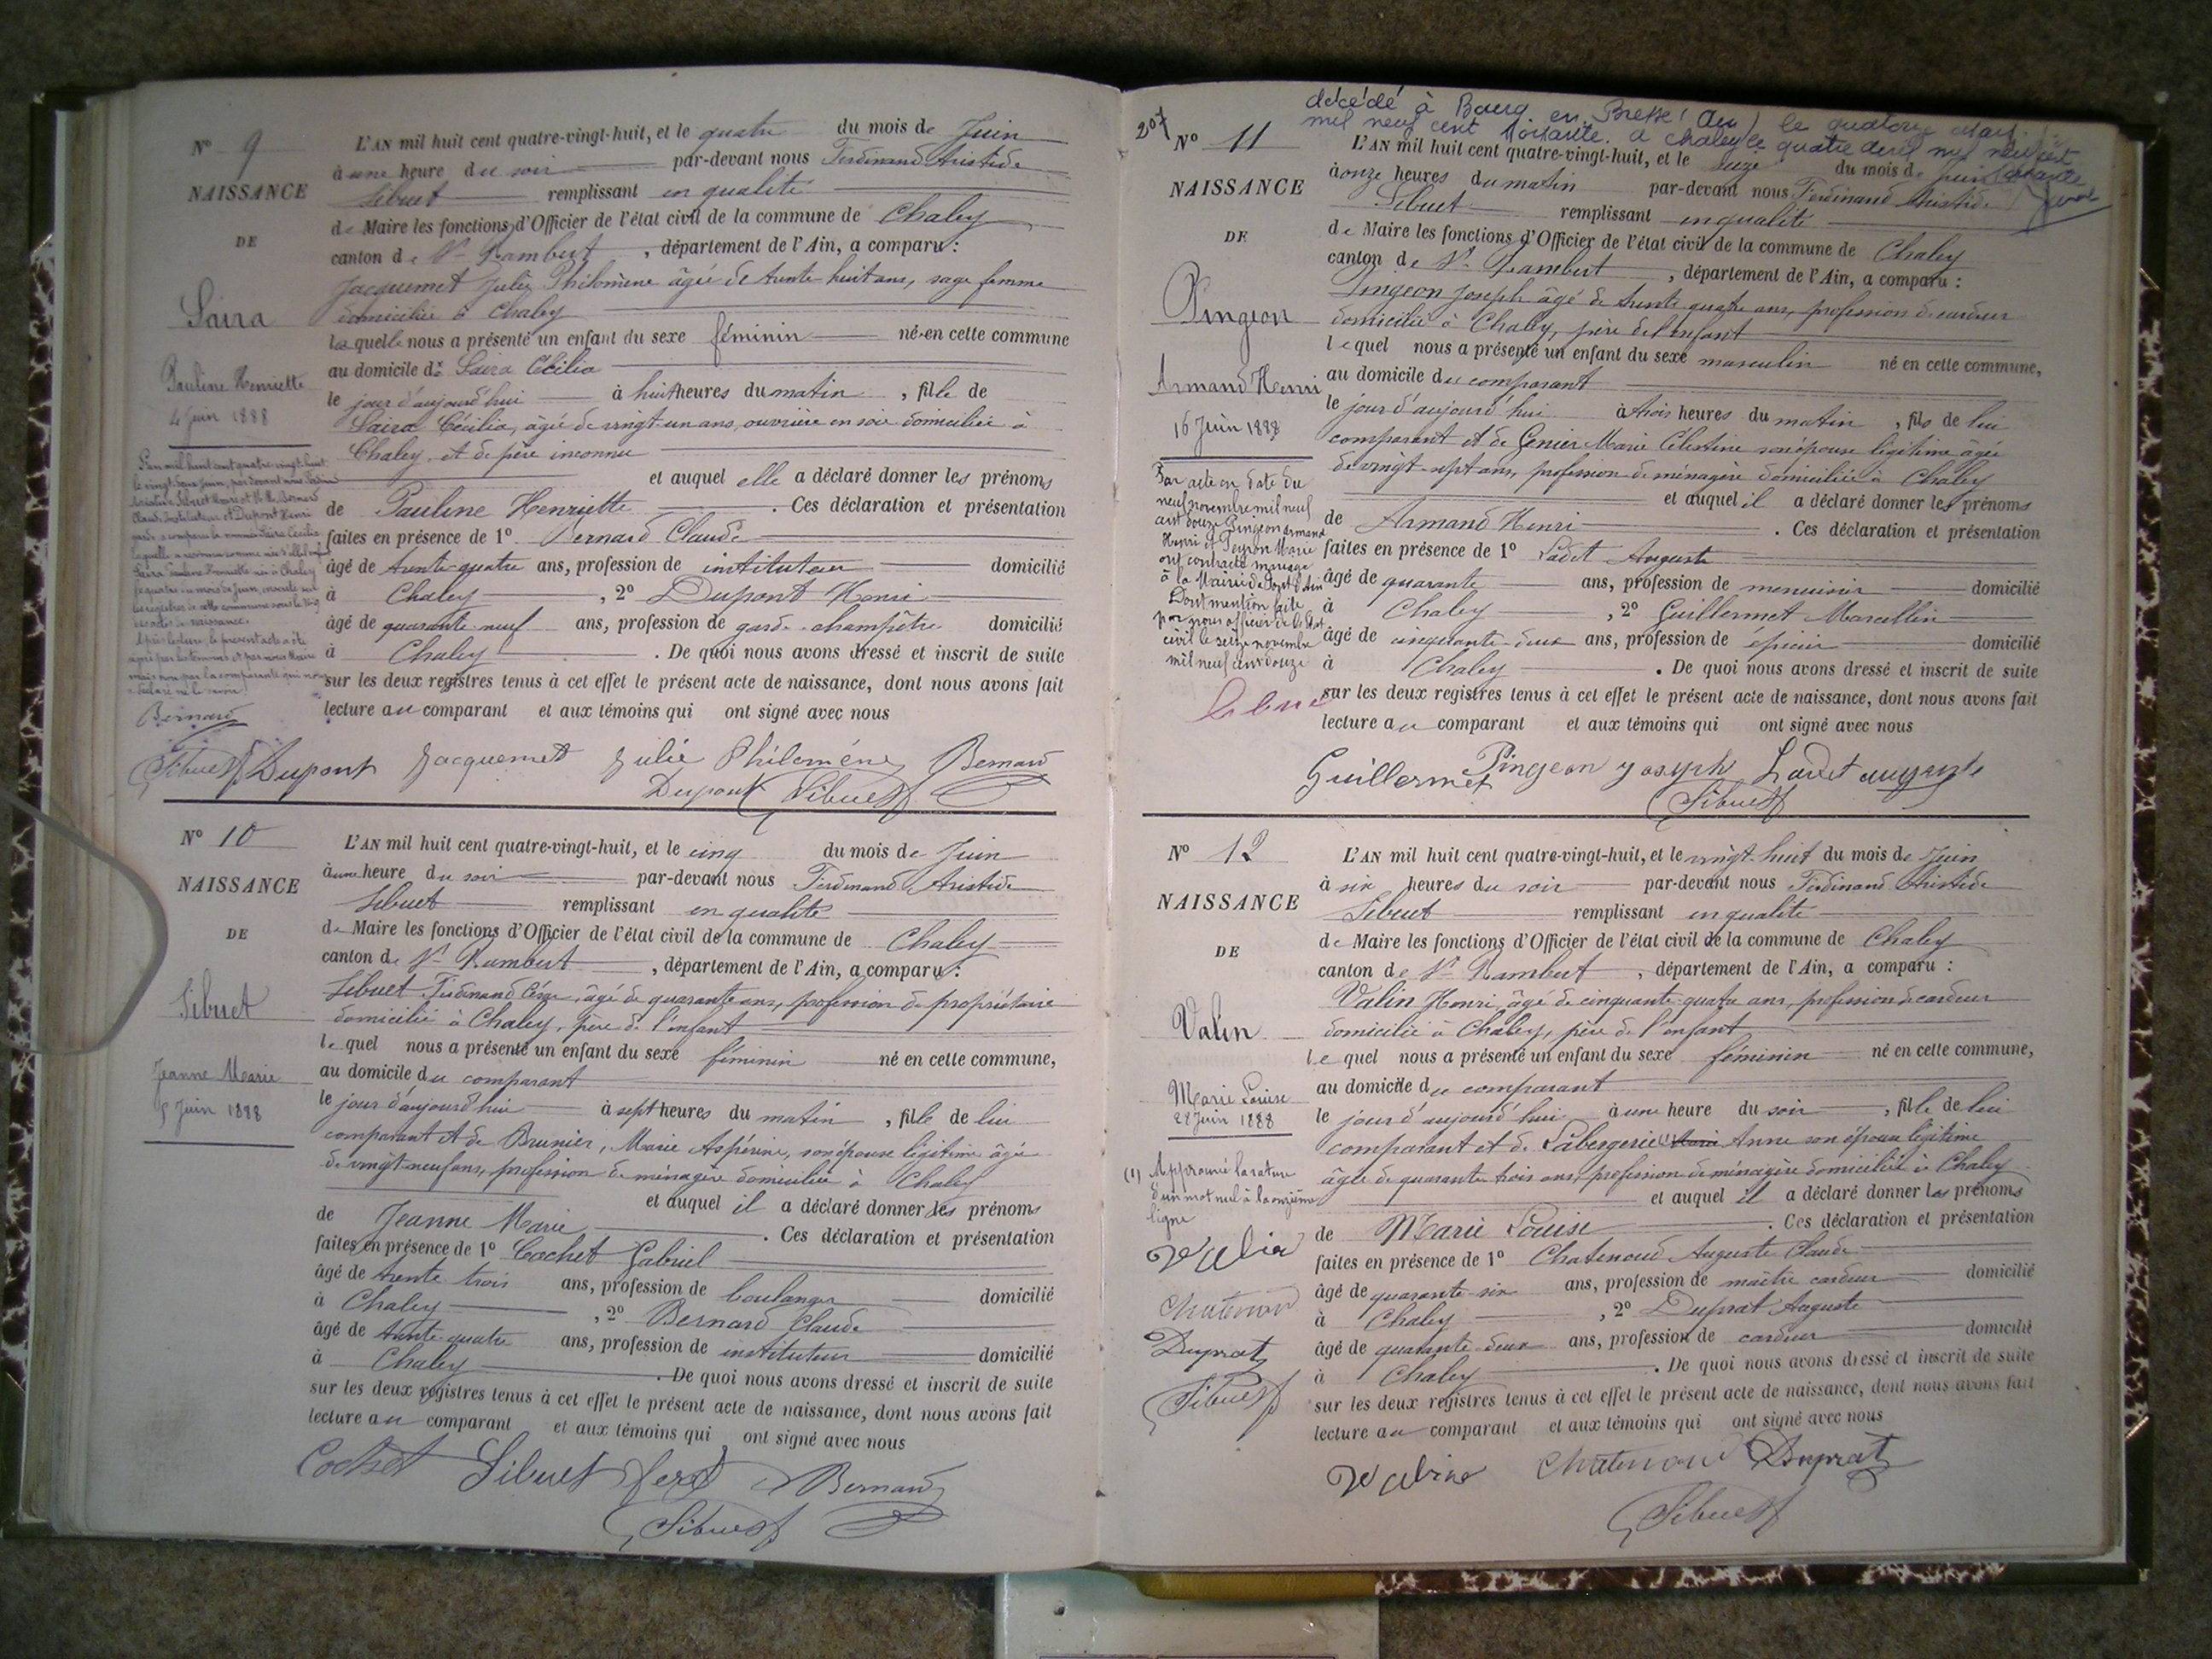 N° 9
NAISSANCE
DE
Saira
Pauline Henriette
4 Juin 1888
L'AN mil huit cent quatre-vingt-huit, et le quatre du mois de Juin
à une heure du soir par-devant nous Ferdinand Aristide
Sibuet remplissant en qualité
de Maire les fonctions d'Officier de l'état civil de la commune de Chaley
canton de St Rambert, département de l'Ain, a comparu :
Jacquemet Julie Philomène âgée de trente huit ans, sage femme
domiciliée à Chaley
laquelle nous a présenté un enfant du sexe féminin né en cette commune
au domicile de Saira Cécilia
le jour d'aujourd'hui à huit heures du matin, fille de
Saira Cécilia, âgée de vingt-un ans, ouvrière en soie domiciliée à
Chaley, et de père inconnu
et auquel elle a déclaré donner les prénoms
de Pauline Henriette. Ces déclaration et présentation
faites en présence de 1° Bernard Claude
âgé de trente-quatre ans, profession de instituteur domicilié
à Chaley, 2° Dupont Henri
âgé de quarante neuf ans, profession de garde-champêtre domicilié
à Chaley. De quoi nous avons dressé et inscrit de suite
sur les deux registres tenus à cet effet le présent acte de naissance, dont nous avons fait
lecture au comparant et aux témoins qui ont signé avec nous
L'an mil huit cent quatre-vingt-huit
Bernard
Sibuet Dupont Jacquemet Julie Philomène Bernard
Dupont Sibuet
N° 10
NAISSANCE
DE
Sibuet
Jeanne Marie
5 Juin 1888
L'AN mil huit cent quatre-vingt-huit, et le cinq du mois de Juin
à une heure du soir par-devant nous Ferdinand Aristide
Sibuet remplissant en qualité
de Maire les fonctions d'Officier de l'état civil de la commune de Chaley
canton de St Rambert, département de l'Ain, a comparu :
Sibuet Ferdinand César, âgé de quarante ans, profession de propriétaire
domicilié à Chaley, père de l'enfant
lequel nous a présenté un enfant du sexe féminin né en cette commune,
au domicile du comparant
le jour d'aujourd'hui à sept heures du matin, fille de lui
comparant et de Brunier, Marie Aspérine, son épouse légitime âgée
de vingt neuf ans, profession de ménagère domiciliée à Chaley
et auquel il a déclaré donner les prénoms
de Jeanne Marie. Ces déclaration et présentation
faites en présence de 1° Cochet Gabriel
âgé de trente trois ans, profession de boulanger domicilié
à Chaley, 2° Bernard Claude
âgé de trente-quatre ans, profession de instituteur domicilié
à Chaley. De quoi nous avons dressé et inscrit de suite
sur les deux registres tenus à cet effet le présent acte de naissance, dont nous avons fait
lecture au comparant et aux témoins qui ont signé avec nous
Cochet Sibuet ferd Bernard
Sibuet
207
décédé à Bourg en Bresse (Ain) le quatorze
mil neuf cent soixante. a Chaley le quatre avril mil neuf cent
soixante
N° 11
NAISSANCE
DE
Pingeon
Armand Henri
16 Juin 1888
Par acte en date du
neuf novembre mil neuf
cent douze Pingeon Armand
Henri et Peyron Marie
ont contracté mariage
à la Mairie de Pont d'Ain
Dont mention faite
par nous officier de l'état
civil le seize novembre
mil neuf cent douze
Sibuet
L'AN mil huit cent quatre-vingt-huit, et le seize du mois de Juin
à onze heures du matin par-devant nous Ferdinand Aristide
Sibuet remplissant en qualité
de Maire les fonctions d'Officier de l'état civil de la commune de Chaley
canton de St Rambert, département de l'Ain, a comparu :
Pingeon Joseph âgé de trente quatre ans, profession de cardeur
domicilié à Chaley, père de l'enfant
lequel nous a présenté un enfant du sexe masculin né en cette commune,
au domicile du comparant
le jour d'aujourd'hui à trois heures du matin, fils de lui
comparant et de Genier Marie Célestine son épouse légitime âgée
de vingt-sept ans, profession de ménagère domiciliée à Chaley
et auquel il a déclaré donner les prénoms
de Armand Henri. Ces déclaration et présentation
faites en présence de 1° Ladet Auguste
âgé de quarante ans, profession de menuisier domicilié
à Chaley, 2° Guillermet Marcellin
âgé de cinquante-deux ans, profession de épicier domicilié
à Chaley. De quoi nous avons dressé et inscrit de suite
sur les deux registres tenus à cet effet le présent acte de naissance, dont nous avons fait
lecture au comparant et aux témoins qui ont signé avec nous
Guillermet Pingeon Joseph Ladet auguste
Sibuet
N° 12
NAISSANCE
DE
Valin
Marie Louise
28 Juin 1888
(1) Approuvé la rature
d'un mot nul à la onzième
ligne
Valin
Chatenoud
Duprat
Sibuet
L'AN mil huit cent quatre-vingt-huit, et le vingt-huit du mois de Juin
à six heures du soir par-devant nous Ferdinand Aristide
Sibuet remplissant en qualité
de Maire les fonctions d'Officier de l'état civil de la commune de Chaley
canton de St Rambert, département de l'Ain, a comparu :
Valin Henri, âgé de cinquante-quatre ans, profession de cardeur
domicilié à Chaley, père de l'enfant
lequel nous a présenté un enfant du sexe féminin né en cette commune,
au domicile du comparant
le jour d'aujourd'hui à une heure du soir, fille de lui
comparant et de Labergerie (1) Marie Anne son épouse légitime
âgée de quarante trois ans, profession de ménagère domiciliée à Chaley
et auquel il a déclaré donner les prénoms
de Marie Louise. Ces déclaration et présentation
faites en présence de 1° Chatenoud Auguste Claude
âgé de quarante-six ans, profession de maître cardeur domicilié
à Chaley, 2° Duprat Auguste
âgé de quarante deux ans, profession de cardeur domicilié
à Chaley. De quoi nous avons dressé et inscrit de suite
sur les deux registres tenus à cet effet le présent acte de naissance, dont nous avons fait
lecture au comparant et aux témoins qui ont signé avec nous
Valin Chatenoud Duprat
Sibuet